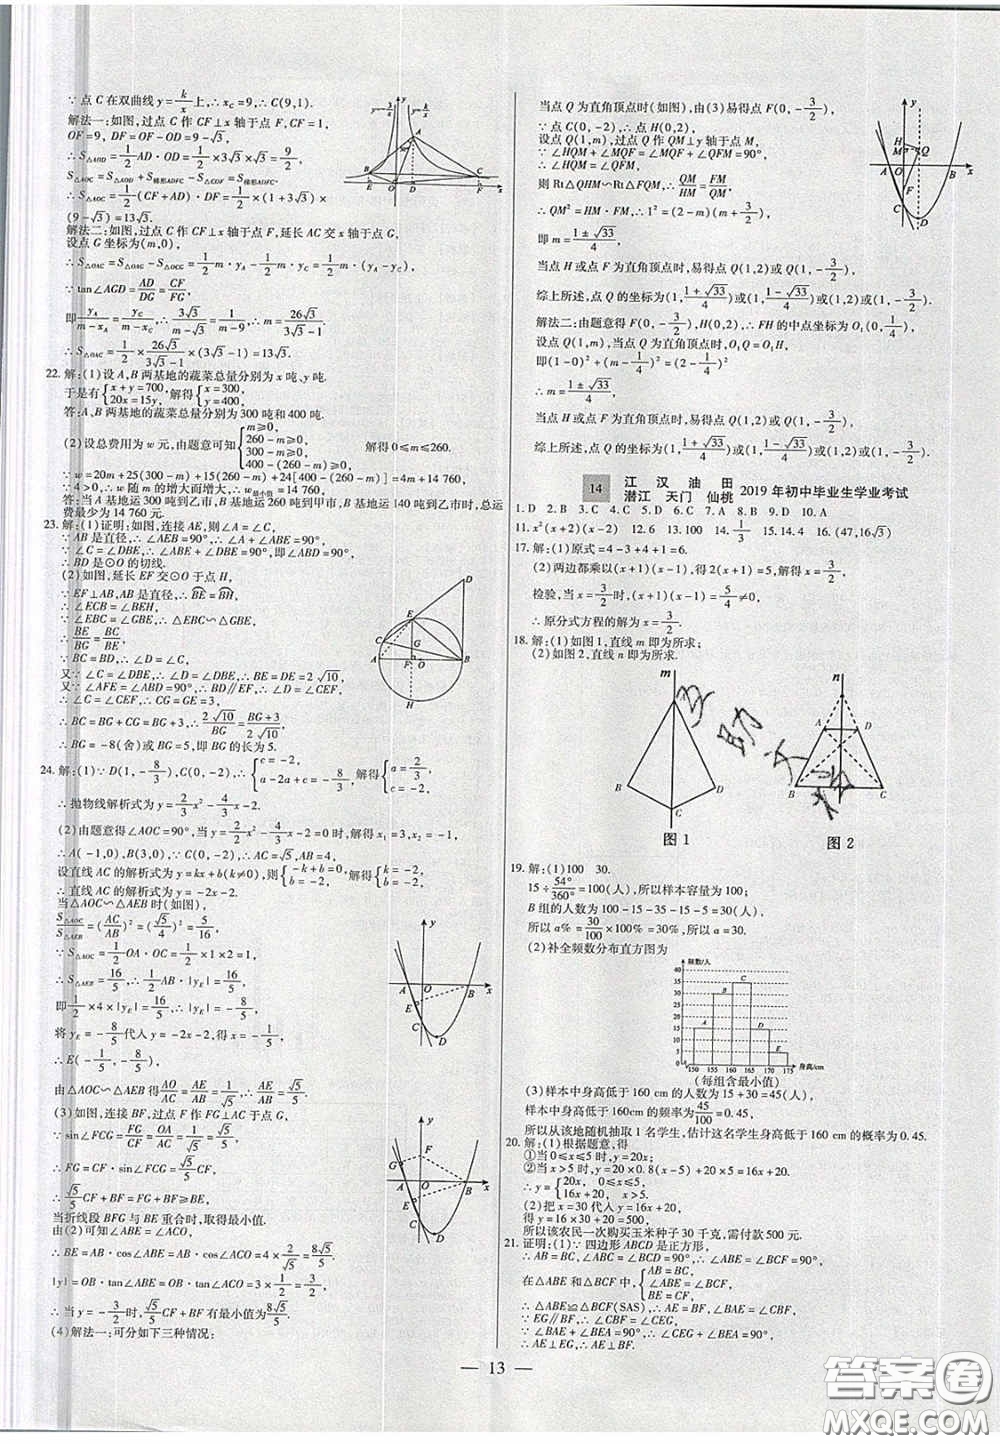 ∵点C在双曲线y=k/x上,∴x_C=9,∴C(9,1).
解法一:如图,过点C作CF⊥x轴于点F,CF=1,
OF=9,DF=OF-OD=9-√3,
∴S△AOD=1/2 AD·OD=1/2×3√3×√3=9/2
∴S△OAC=S△AOD+S梯形ADFC-S△COF=S梯形ADFC
∴S△OAC=1/2(CF+AD)·DF=1/2×(1+3√3)×
(9-√3)=13√3.
解法二:如图,过点C作CF⊥x轴于点F,延长AC交x轴于点G,
设点G坐标为(m,0),
∵tan∠AGD=AD/DG=CF/FG,
即y_A/(m-x_A)=y_C/(m-x_C),∴3√3/(m-√3)=1/(m-9),∴m=26√3/(3√3-1).
∴S△OAC=1/2×26√3/(3√3-1)×(3√3-1)=13√3.
22.解:(1)设A,B两基地的蔬菜总量分别为x吨、y吨.
于是有{x+y=700,20x=15y,解得{x=300,y=400.
答:A,B两基地的蔬菜总量分别为300吨和400吨.
(2)设总费用为w元,由题意可知{m≥0,260-m≥0,300-m≥0,42-(260-m)≥0.解得0≤m≤260.
∵w=20m+25(300-m)+15(260-m)+24[400-(260-m)]=4m+14 760.
∵4>0,∴w随m的增大而增大,∴w最小值=14 760.
答:A基地运300吨到乙市,B基地运260吨到甲市,B基地运140吨到乙市时,总运
费最少为14 760元.
23.解:(1)证明:如图,连接AE,则∠A=∠C,
∵AB是直径,∴∠AEB=90°,∴∠A+∠ABE=90°.
∵∠C=∠DBE,∴∠ABE+∠DBE=90°,
∴BD是⊙O的切线.
(2)如图,延长EF交⊙O于点H,
∵EF⊥AB,AB是直径,∴BE=BH,
∴∠ECB=∠BEH,
∵∠EBC=∠GBE,∴△EBC∽△GBE,
∴BE/BG=BC/BE
∵BC=BD,∴∠D=∠C,
又∵∠C=∠DBE,∴∠D=∠DBE,∴BE=DE=2√10,
又∵∠AFE=∠ABD=90°,∴BD∥EF,∴∠D=∠CEF,
∴∠C=∠CEG,∴CG=GE=3,
∴BC=BG+CG=BG+3,∴2√10/BG=(BG+3)/2√10
∴BG=-8(舍)或BG=5,即BG的长为5.
24.解:(1)∵D(1,-8/3),C(0,-2),∴{c=-2,a-2a+c=-8/3,解得{a=2/3,c=-2.
∴抛物线解析式为y=2/3x²-4/3x-2.
(2)由题意得∠AOC=90°,当y=2/3x²-4/3x-2=0时,解得x₁=3,x₂=-1,
∴A(-1,0),B(3,0),∵C(0,-2),∴AC=√5,AB=4,
设直线AC的解析式为y=kx+b(k≠0),则{-k+b=0,b=-2,解得{k=-2,b=-2.
∴直线AC的解析式为y=-2x-2.
当△AOC∽△AEB时(如图),
S△AOC/S△AEB=(AC/AB)²=(√5/4)²=5/16,
∵S△AOC=1/2 OA·OC=1/2×1×2=1,
∴S△AEB=16/5,∴1/2 AB·|y_E|=16/5,
即1/2×4×|y_E|=16/5,∴|y_E|=8/5
将y_E=-8/5代入y=-2x-2,得x=-1/5,
∴E(-1/5,-8/5),
由△AOC∽△AEB得AO/AC=AE/AB=1/√5,∴AE/AB=√5/5.
(3)如图,连接BF,过点F作FG⊥AC于点G,
∵sin∠FCG=FG/CF=OA/AC=1/√5=√5/5,
∴FG=CF·sin∠FCG=√5/5 CF,
∴√5/5 CF+BF=FG+BF≥BE,
当折线段BFG与BE重合时,取得最小值.
由(2)可知∠ABE=∠ACO,
∴BE=AB·cos∠ABE=AB·cos∠ACO=4×2/√5=8√5/5,
|y|=OB·tan∠ABE=OB·tan∠ACO=3×1/2=3/2,
∴当y=-3/2时,√5/5 CF+BF有最小值为8√5/5.
(4)解法一:可分如下三种情况:
当点Q为直角顶点时(如图),由(3)易得点F(0,-3/2),
∵点C(0,-2),∴点H(0,2),
设点Q(1,m),过点Q作QM⊥y轴于点M,
∵∠HQM+∠MQF=∠MQF+∠QFM=90°,
则Rt△QHM∽Rt△FQM,∴QM/HM=FM/QM
∴QM²=HM·FM,∴1²=(2-m)(m+3/2),
即m=(1±√33)/4,
当点H或点F为直角顶点时,易得点Q(1,2)或点Q(1,-3/2),
综上所述,点Q的坐标为(1,(1+√33)/4)或(1,(1-√33)/4)或(1,2)或(1,-3/2).
解法二:由题意得F(0,-3/2),H(0,2),∴FH的中点坐标为O₁(0,1/4),
设点Q(1,m),当点Q为直角顶点时,O₁Q=O₁H,
即(1-0)²+(m-1/4)²=(2-1/4)²,
∴m=(1±√33)/4
当点H或点F为直角顶点时,易得点Q(1,2)或点Q(1,-3/2),
综上所述,点Q的坐标为(1,(1+√33)/4)或(1,(1-√33)/4)或(1,2)或(1,-3/2).
14 江汉油田 潜江 天门 仙桃 2019年初中毕业生学业考试
1.D 2.B 3.C 4.C 5.C 6.C 7.A 8.B 9.D 10.A
11.x²(x+2)(x-2) 12.6 13.100 14.1/3 15.14.4 16.(47,16√3)
17.解:(1)原式=4-3+4+1=6.
(2)两边都乘以(x+1)(x-1),得2(x+1)=5,解得x=3/2,
检验,当x=3/2时,(x+1)(x-1)=5/4≠0,
∴原分式方程的解为x=3/2.
18.解:(1)如图1,直线m即为所求;
(2)如图2,直线n即为所求.
图1
图2
19.解:(1)100 30.
15÷54°/360°=100(人),所以样本容量为100;
B组的人数为100-15-35-15-5=30(人),
所以a%=30/100×100%=30%,所以a=30.
(2)补全频数分布直方图为
频数/人
150 155 160 165 170 175 身高/cm
(每组含最小值)
(3)样本中身高低于160 cm的人数为15+30=45(人),
样本中身高低于160cm的频率为45/100=0.45,
所以从该地随机抽取1名学生,估计这名学生身高低于160 cm的概率为0.45.
20.解:(1)根据题意,得
①当0≤x≤5时,y=20x;
②当x>5时,y=20×0.8(x-5)+20×5=16x+20,
∴y={20x,0≤x≤5,16x+20,x>5.
(2)把x=30代入y=16x+20,
得y=16×30+20=500,
所以该农民一次购买玉米种子30千克,需付款500元.
21.证明:(1)∵四边形ABCD是正方形,
∴AB=BC,∠ABC=∠BCD=90°,∴∠ABE=∠BCF=90°,
在△ABE和△BCF中,{AB=BC,∠ABE=∠BCF,BE=CF,
∴△ABE≌△BCF(SAS),∴AE=BF,∠BAE=∠CBF,
∵EG∥BF,∴∠CBF=∠CEG,
∵∠BAE+∠BEA=90°,∴∠CEG+∠BEA=90°,
∴AE⊥EG,∴AE⊥BF;
— 13 —
答案圈
MXQE.COM